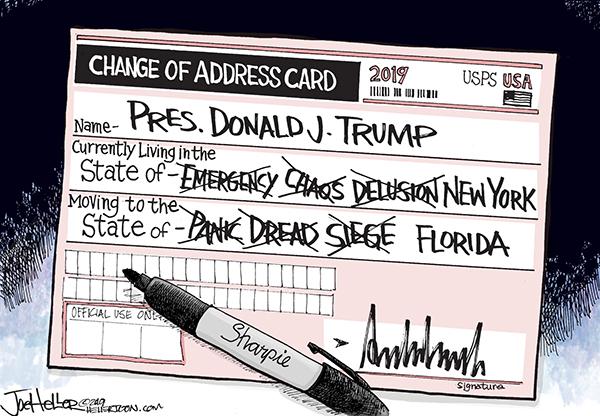 CHANGE OF ADDRESS CARD
2019
USPS USA
Name- PRES. DONALD J. TRUMP
Currently Living in the
State of - EMERGENCY CHAOS DELUSION NEW YORK
Moving to the
State of - PANIC DREAD SIEGE FLORIDA
OFFICIAL USE ONLY
Sharpie
Signature
JOE HELLER ©2019
HELLERTOON.COM